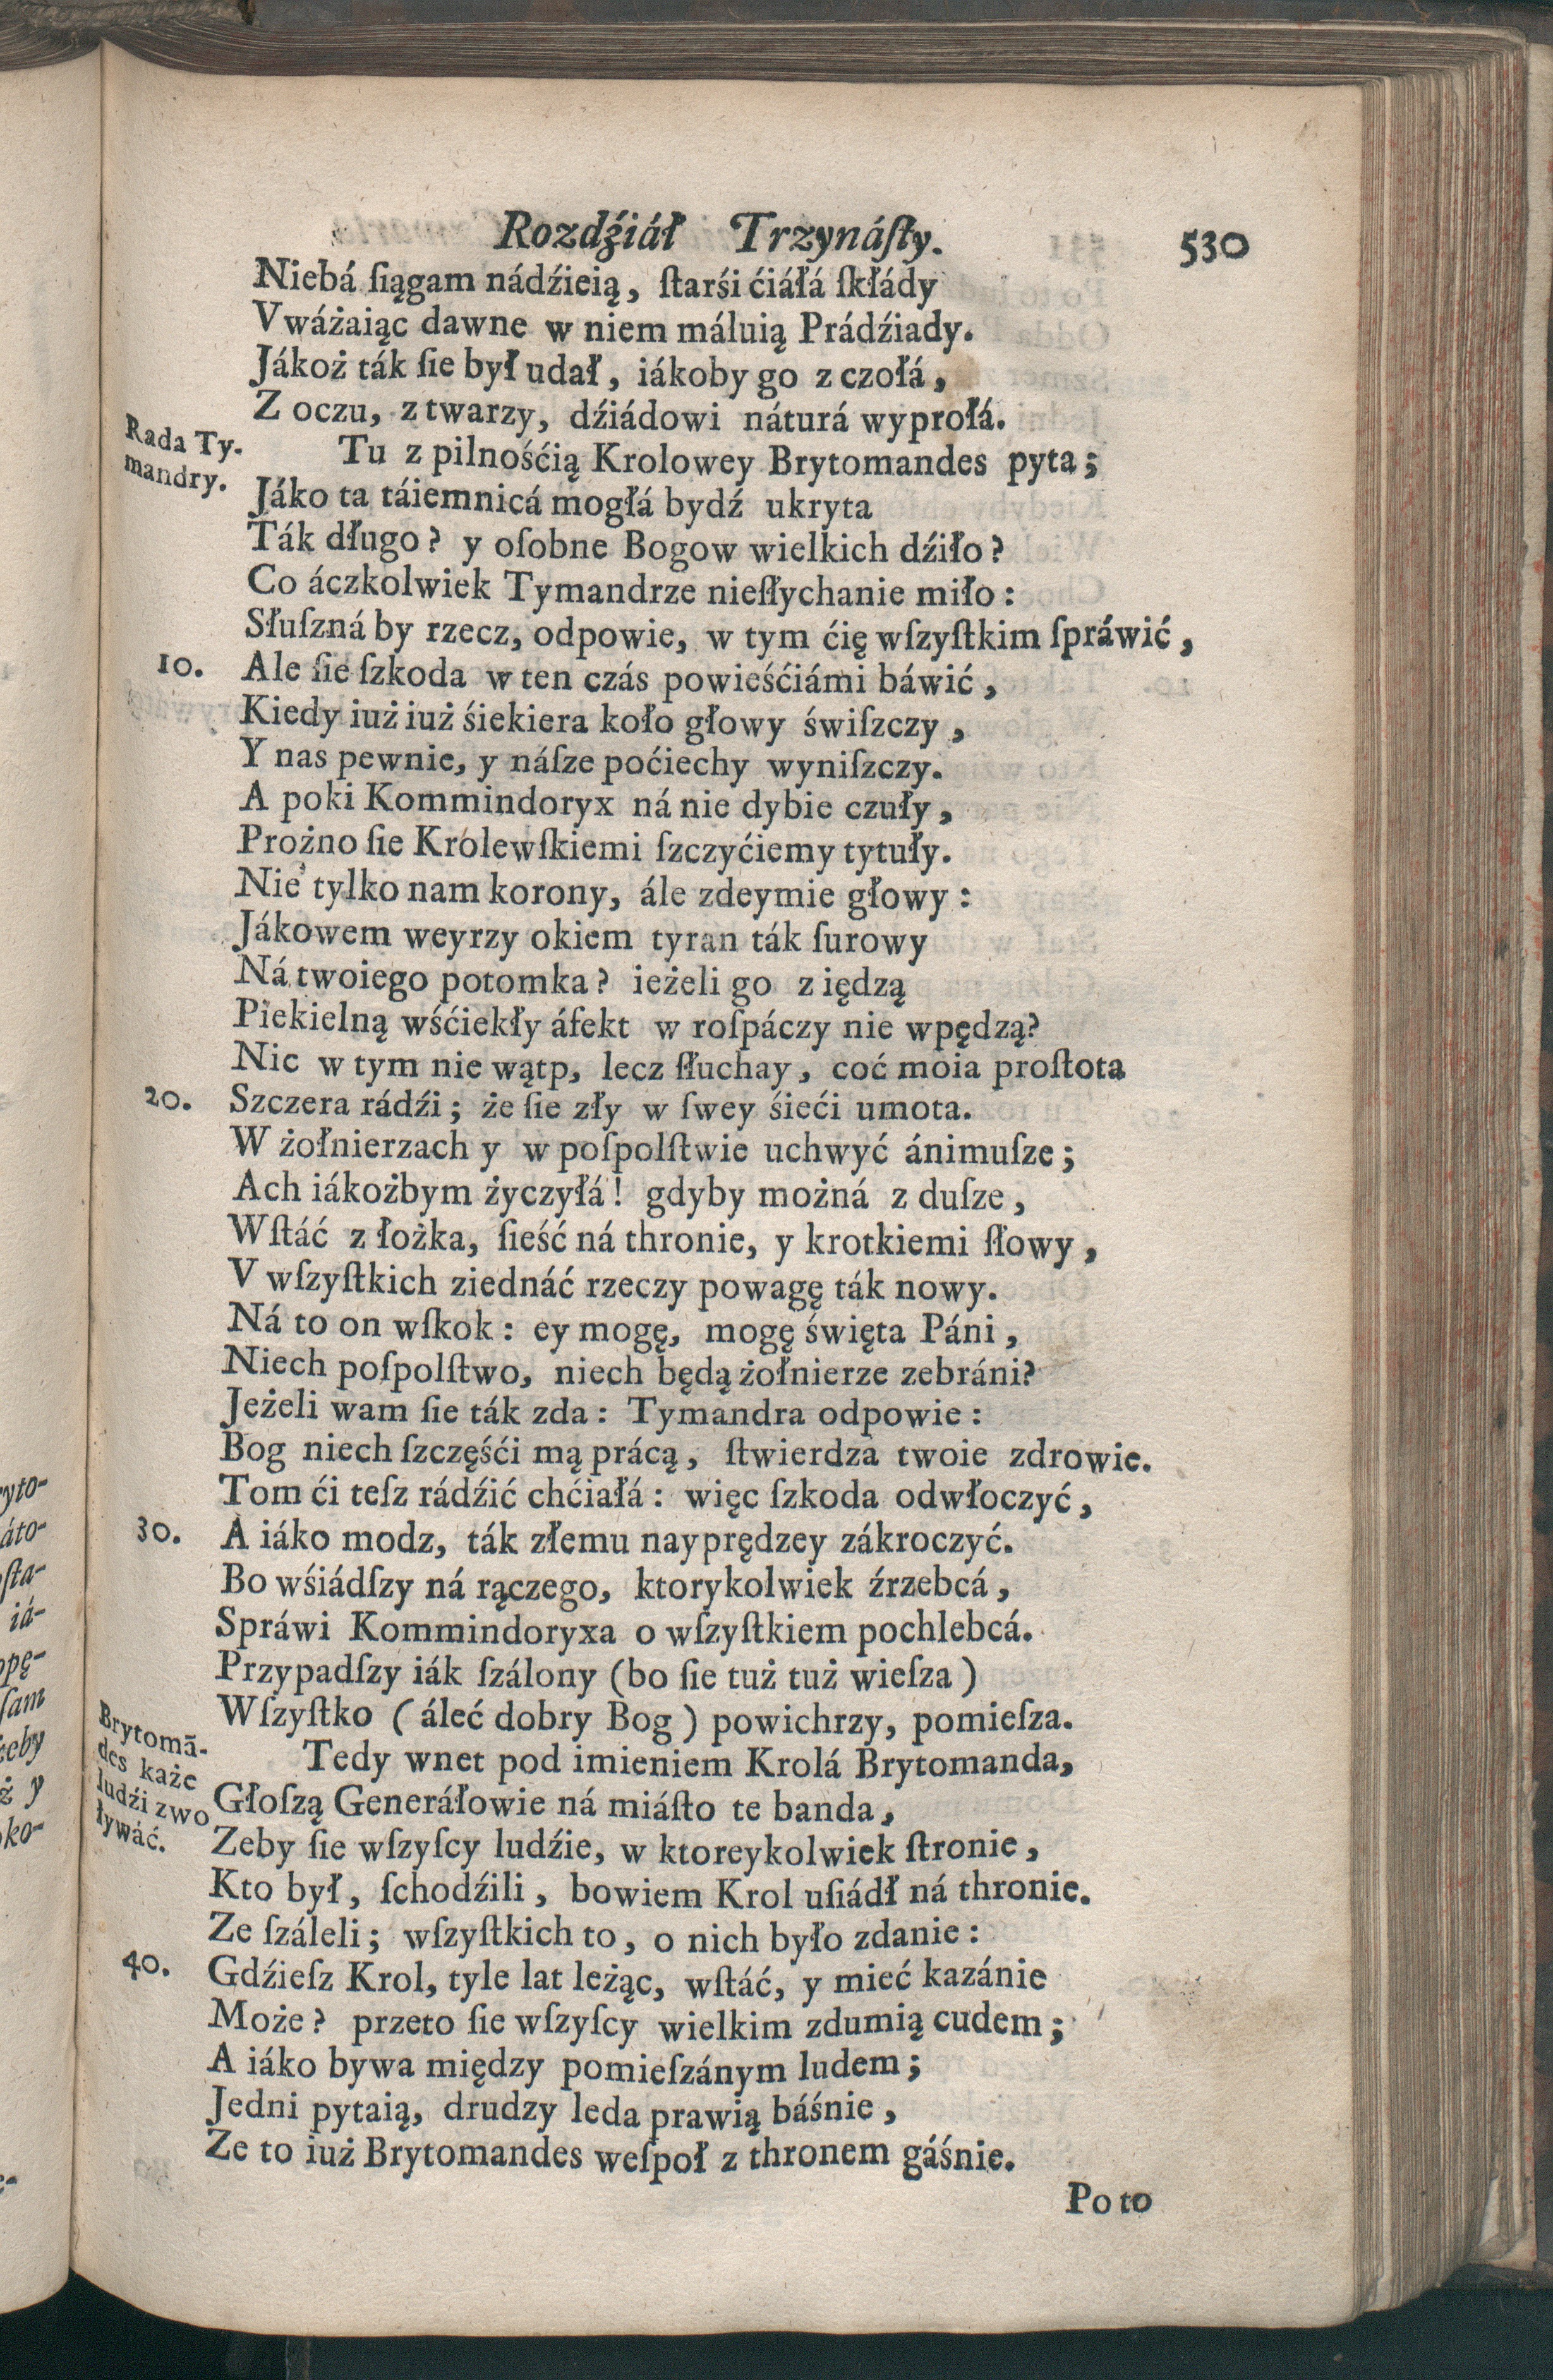 Rozdźiáł Trzynáſty. 530
Niebá ſiągam nádźieią, ſtarśi ćiáłá ſkłády
Vwáżaiąc dawne w niem máluią Prádźiady.
Jákoż ták ſie był udał, iákoby go z czołá,
Z oczu, z twarzy, dźiádowi náturá wyprołá.
Rada Ty-
mandry.
Tu z pilnośćią Krolowey Brytomandes pyta;
Jáko ta táiemnicá mogłá bydź ukryta
Ták długo? y oſobne Bogow wielkich dźiło?
Co áczkolwiek Tymandrze nieſłychanie miło:
Słuſzná by rzecz, odpowie, w tym ćię wſzyſtkim ſpráwić,
10. Ale ſie ſzkoda w ten czás powieśćiámi báwić,
Kiedy iuż iuż śiekiera koło głowy świſzczy,
Y nas pewnie, y náſze poćiechy wyniſzczy.
A poki Kommindoryx ná nie dybie czuły,
Prożno ſie Krolewſkiemi ſzczyćiemy tytuły.
Nie tylko nam korony, ále zdeymie głowy:
Jákowem weyrzy okiem tyran ták ſurowy
Ná twoiego potomka? ieżeli go z iędzą
Piekielną wśćiekły áfekt w roſpáczy nie wpędzą?
Nic w tym nie wątp, lecz ſłuchay, coć moia proſtota
20. Szczera rádźi; że ſie zły w ſwey śieći umota.
W żołnierzach y w poſpolſtwie uchwyć ánimuſze;
Ach iákożbym życzyłá! gdyby możná z duſze,
Wſtáć z łożka, ſieść ná thronie, y krotkiemi ſłowy,
V wſzyſtkich ziednáć rzeczy powagę ták nowy.
Ná to on wſkok: ey mogę, mogę święta Páni,
Niech poſpolſtwo, niech będą żołnierze zebráni?
Jeżeli wam ſie ták zda: Tymandra odpowie:
Bog niech ſzczęśći mą prácą, ſtwierdza twoie zdrowie.
Tom ći teſz rádźić chćiałá: więc ſzkoda odwłoczyć,
30. A iáko modz, ták złemu nayprędzey zákroczyć.
Bo wśiádſzy ná rączego, ktorykolwiek źrzebcá,
Spráwi Kommindoryxa o wſzyſtkiem pochlebcá.
Przypadſzy iák ſzálony (bo ſie tuż tuż wieſza)
Wſzyſtko (áleć dobry Bog) powichrzy, pomieſza.
Brytomā-
des każe
ludźi zwo
ływáć.
Tedy wnet pod imieniem Krolá Brytomanda,
Głoſzą Generáłowie ná miáſto te banda,
Zeby ſie wſzyſcy ludźie, w ktoreykolwiek ſtronie,
Kto był, ſchodźili, bowiem Krol uſiádł ná thronie.
Ze ſzáleli; wſzyſtkich to, o nich było zdanie:
40. Gdźieſz Krol, tyle lat leżąc, wſtáć, y mieć kazánie
Może? przeto ſie wſzyſcy wielkim zdumią cudem;
A iáko bywa między pomieſzánym ludem;
Jedni pytaią, drudzy leda prawią báśnie,
Ze to iuż Brytomandes weſpoł z thronem gáśnie.
Po to